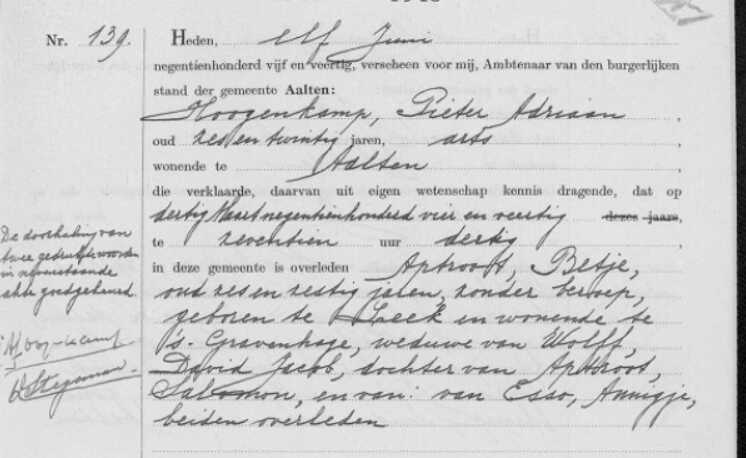 Nr. 139.
Heden, elf Juni
negentienhonderd vijf en veertig, verscheen voor mij, Ambtenaar van den burgerlijken
stand der gemeente Aalten:
Hoogenkamp, Pieter Adriaan,
oud zes en twintig jaren, arts,
wonende te Aalten
die verklaarde, daarvan uit eigen wetenschap kennis dragende, dat op
dertig Maart negentienhonderd vier en veertig dezes jaars,
te zeventien uur dertig,
in deze gemeente is overleden Aptroot, Betje,
oud zes en zestig jaren, zonder beroep,
geboren te Leek en wonende te
's-Gravenhage, weduwe van Wolff,
David Jacob, dochter van Aptroot,
Salomon, en van: van Esso, Annigje,
beiden overleden
De doorhaling van
twee gedrukte woorden
in nevenstaande
akte goedgekeurd.